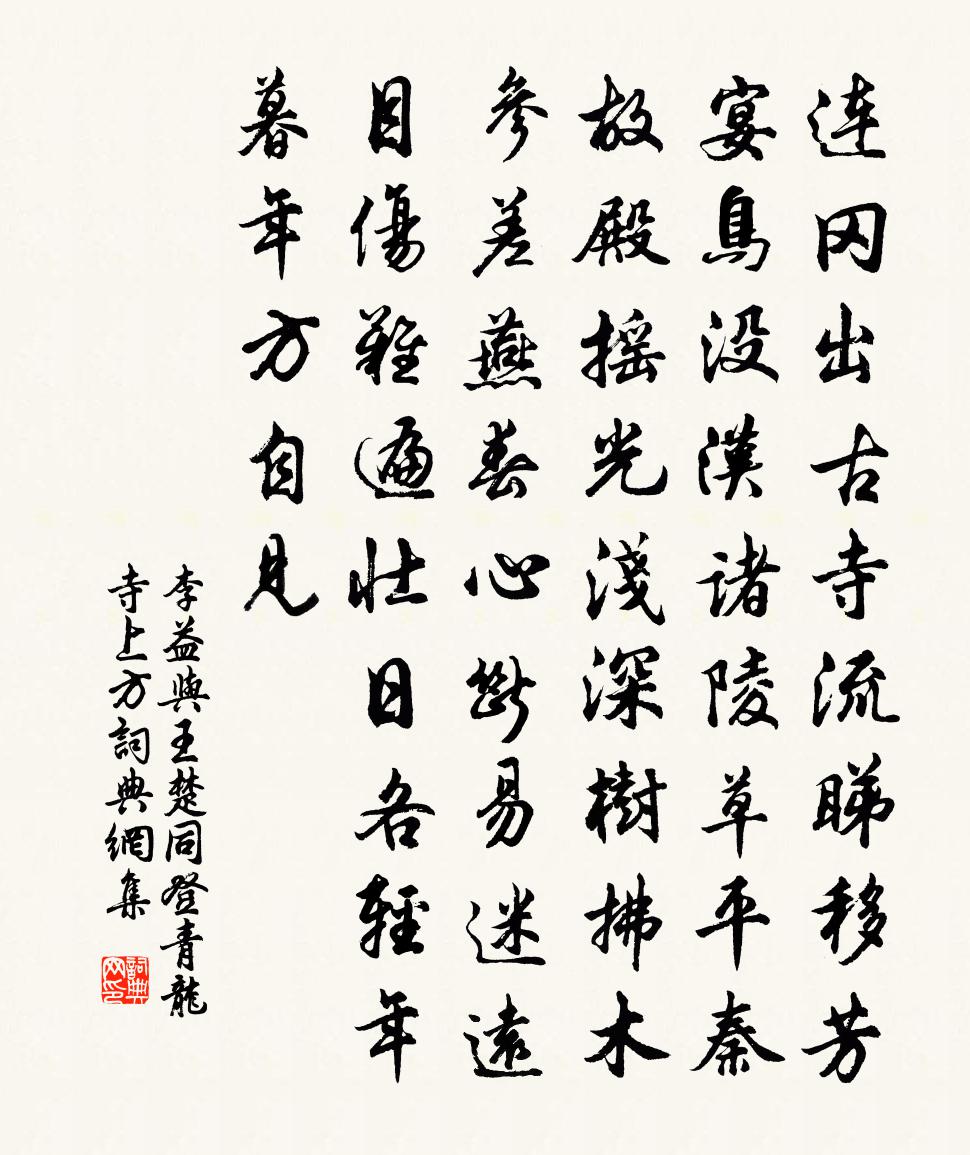 连冈出古寺流睇移芳
宴鳥没漢諸陵草平秦
故殿摇光淺深樹拂木
參差燕春心斷易迷遠
目傷難遍壯日各輕年
暮年方自見
李益與王楚同登青龍
寺上方詞典網集
詞典网印